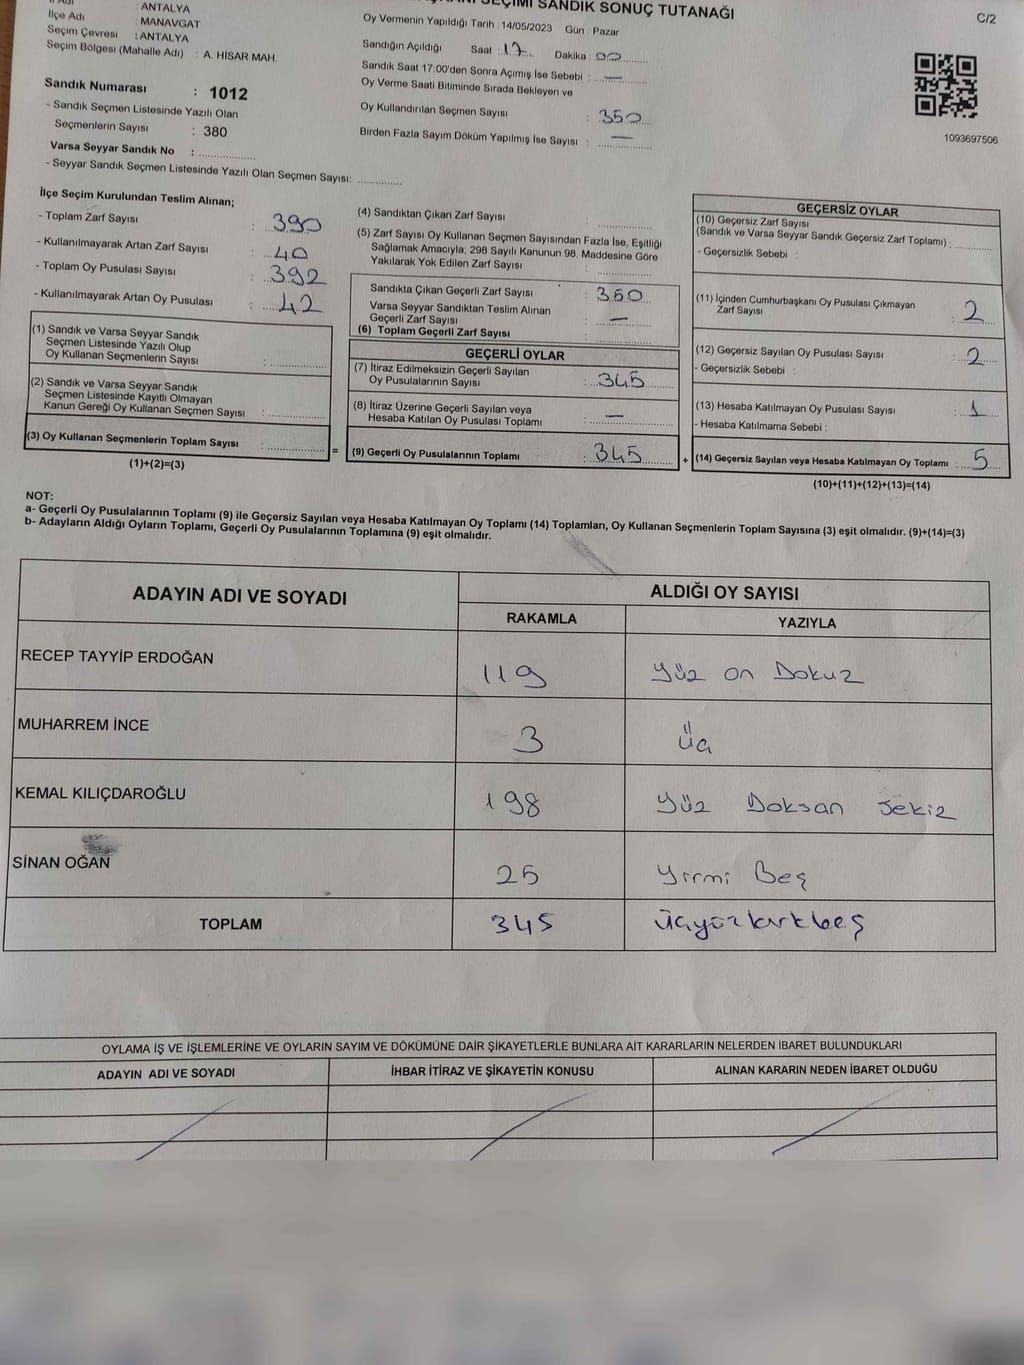 SEÇİMİ SANDIK SONUÇ TUTANAĞI
C/2
İl Adı : ANTALYA
İlçe Adı : MANAVGAT
Seçim Çevresi : ANTALYA
Seçim Bölgesi (Mahalle Adı) : A. HİSAR MAH.
Oy Vermenin Yapıldığı Tarih : 14/05/2023 Gün : Pazar
Sandığın Açıldığı Saat : 17 Dakika : 00
Sandık Saat 17:00'den Sonra Açımış İse Sebebi : —
Oy Verme Saati Bitiminde Sırada Bekleyen ve
Oy Kullandırılan Seçmen Sayısı : 350
Birden Fazla Sayım Döküm Yapılmış İse Sayısı : —
1093697506
Sandık Numarası : 1012
- Sandık Seçmen Listesinde Yazılı Olan
Seçmenlerin Sayısı : 380
Varsa Seyyar Sandık No :
- Seyyar Sandık Seçmen Listesinde Yazılı Olan Seçmen Sayısı:
İlçe Seçim Kurulundan Teslim Alınan;
- Toplam Zarf Sayısı : 390
- Kullanılmayarak Artan Zarf Sayısı : 40
- Toplam Oy Pusulası Sayısı : 392
- Kullanılmayarak Artan Oy Pusulası : 42
(1) Sandık ve Varsa Seyyar Sandık
Seçmen Listesinde Yazılı Olup
Oy Kullanan Seçmenlerin Sayısı :
(2) Sandık ve Varsa Seyyar Sandık
Seçmen Listesinde Kayıtlı Olmayan
Kanun Gereği Oy Kullanan Seçmen Sayısı :
(3) Oy Kullanan Seçmenlerin Toplam Sayısı : =
(1)+(2)=(3)
(4) Sandıktan Çıkan Zarf Sayısı :
(5) Zarf Sayısı Oy Kullanan Seçmen Sayısından Fazla İse, Eşitliği
Sağlamak Amacıyla; 298 Sayılı Kanunun 98. Maddesine Göre
Yakılarak Yok Edilen Zarf Sayısı :
Sandıkta Çıkan Geçerli Zarf Sayısı : 350
Varsa Seyyar Sandıktan Teslim Alınan
Geçerli Zarf Sayısı : —
(6) Toplam Geçerli Zarf Sayısı :
GEÇERLİ OYLAR
(7) İtiraz Edilmeksizin Geçerli Sayılan
Oy Pusulalarının Sayısı : 345
(8) İtiraz Üzerine Geçerli Sayılan veya
Hesaba Katılan Oy Pusulası Toplamı : —
(9) Geçerli Oy Pusulalarının Toplamı : 345 +
GEÇERSİZ OYLAR
(10) Geçersiz Zarf Sayısı
(Sandık ve Varsa Seyyar Sandık Geçersiz Zarf Toplamı) :
- Geçersizlik Sebebi :
(11) İçinden Cumhurbaşkanı Oy Pusulası Çıkmayan
Zarf Sayısı : 2
(12) Geçersiz Sayılan Oy Pusulası Sayısı : 2
- Geçersizlik Sebebi :
(13) Hesaba Katılmayan Oy Pusulası Sayısı : 1
- Hesaba Katılmama Sebebi :
(14) Geçersiz Sayılan veya Hesaba Katılmayan Oy Toplamı : 5
(10)+(11)+(12)+(13)=(14)
NOT:
a- Geçerli Oy Pusulalarının Toplamı (9) ile Geçersiz Sayılan veya Hesaba Katılmayan Oy Toplamı (14) Toplamları, Oy Kullanan Seçmenlerin Toplam Sayısına (3) eşit olmalıdır. (9)+(14)=(3)
b- Adayların Aldığı Oyların Toplamı, Geçerli Oy Pusulalarının Toplamına (9) eşit olmalıdır.
ADAYIN ADI VE SOYADI
ALDIĞI OY SAYISI
RAKAMLA YAZIYLA
RECEP TAYYİP ERDOĞAN 119 Yüz on Dokuz
MUHARREM İNCE 3 Üç
KEMAL KILIÇDAROĞLU 198 Yüz Doksan Sekiz
SİNAN OĞAN 25 Yirmi Beş
TOPLAM 345 Üçyüzkırkbeş
OYLAMA İŞ VE İŞLEMLERİNE VE OYLARIN SAYIM VE DÖKÜMÜNE DAİR ŞİKAYETLERLE BUNLARA AİT KARARLARIN NELERDEN İBARET BULUNDUKLARI
ADAYIN ADI VE SOYADI İHBAR İTİRAZ VE ŞİKAYETİN KONUSU ALINAN KARARIN NEDEN İBARET OLDUĞU